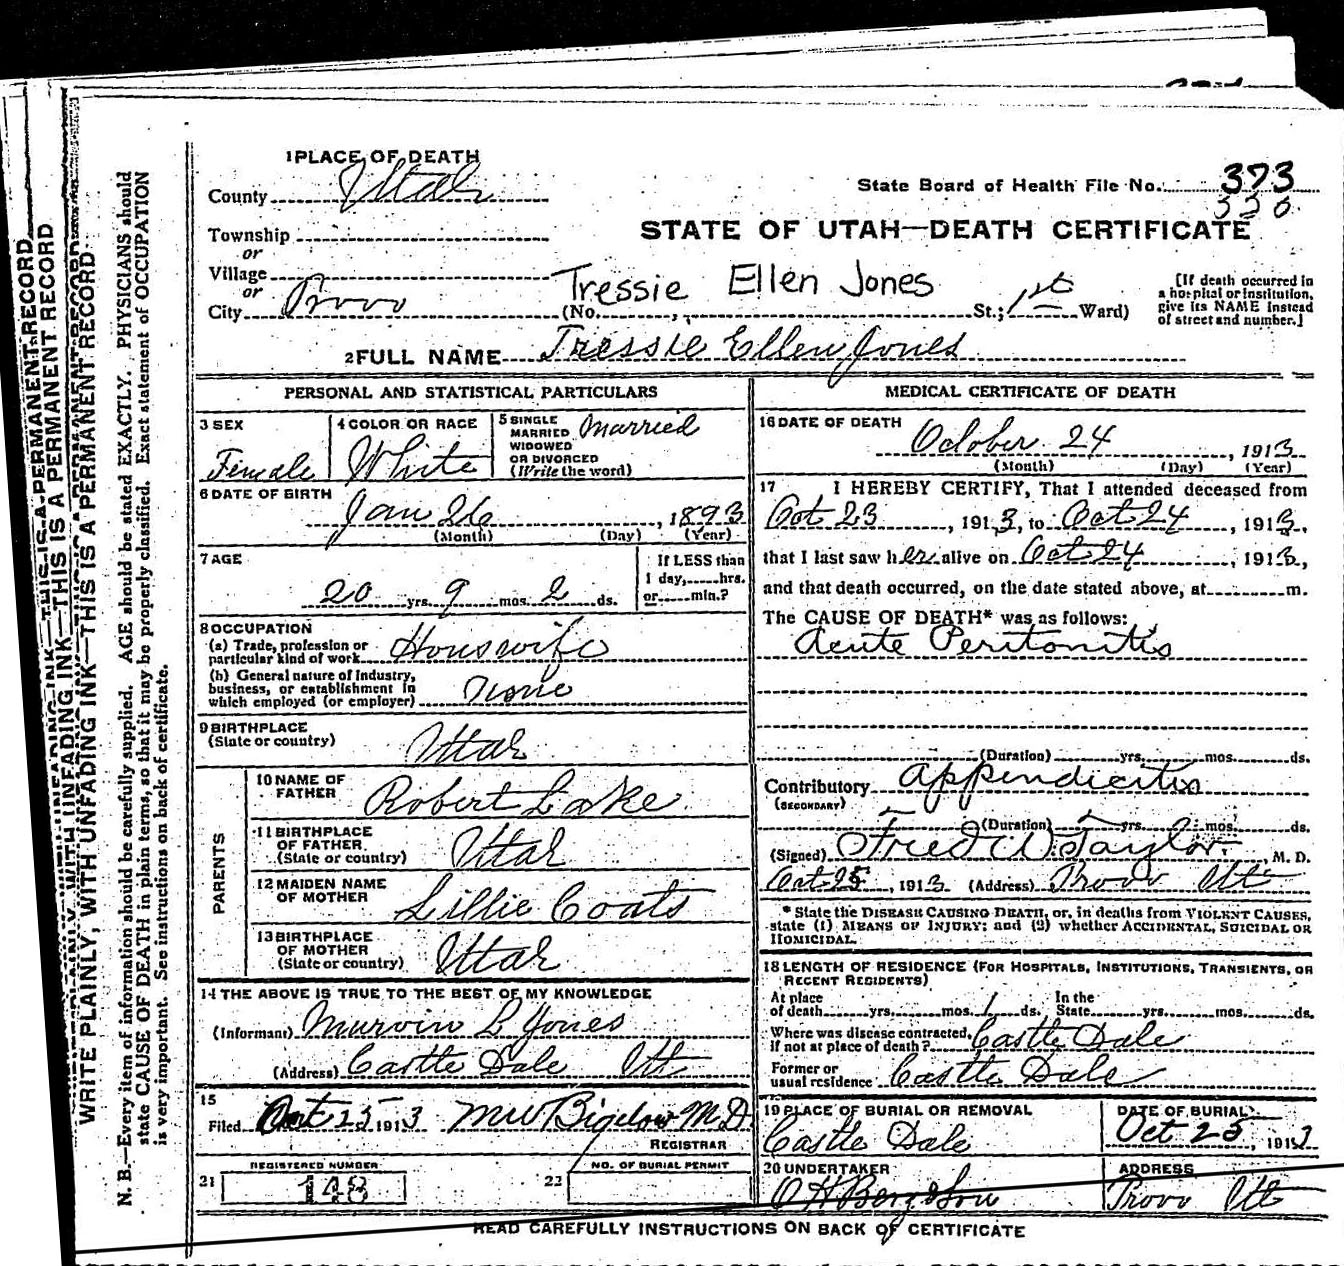 1 PLACE OF DEATH
County Utah
State Board of Health File No. 373
330
Township
or
Village
or
City Provo
STATE OF UTAH—DEATH CERTIFICATE
Tressie Ellen Jones
(No. , St.; 1st Ward)
[If death occurred in
a hospital or institution,
give its NAME instead
of street and number.]
2 FULL NAME Tressie Ellen Jones
PERSONAL AND STATISTICAL PARTICULARS
3 SEX
Female
4 COLOR OR RACE
White
5 SINGLE
MARRIED
WIDOWED
OR DIVORCED
(Write the word)
Married
6 DATE OF BIRTH
Jan 26, 1893
(Month) (Day) (Year)
7 AGE
20 yrs. 9 mos. 2 ds.
If LESS than
1 day, hrs.
or min.?
8 OCCUPATION
(a) Trade, profession or
particular kind of work Houswife
(b) General nature of Industry,
business, or establishment in
which employed (or employer) None
9 BIRTHPLACE
(State or country) Utah
PARENTS
10 NAME OF
FATHER Robert Lake
11 BIRTHPLACE
OF FATHER
(State or country) Utah
12 MAIDEN NAME
OF MOTHER Lillie Coats
13 BIRTHPLACE
OF MOTHER
(State or country) Utah
14 THE ABOVE IS TRUE TO THE BEST OF MY KNOWLEDGE
(Informant) Murvin L Jones
(Address) Castle Dale Ut
15
Filed Oct 25 1913 MW Bigelow M D
REGISTRAR
21 REGISTERED NUMBER
148
22 NO. OF BURIAL PERMIT
MEDICAL CERTIFICATE OF DEATH
16 DATE OF DEATH
October 24, 1913
(Month) (Day) (Year)
17 I HEREBY CERTIFY, That I attended deceased from
Oct 23, 1913, to Oct 24, 1913,
that I last saw her alive on Oct 24, 1913,
and that death occurred, on the date stated above, at m.
The CAUSE OF DEATH* was as follows:
Acute Peritonitis
(Duration) yrs. mos. ds.
Contributory Appendicitis
(SECONDARY)
(Duration) yrs. mos. ds.
(Signed) Fred W Taylor, M. D.
Oct 25, 1913 (Address) Provo Ut
* State the DISEASE CAUSING DEATH, or, in deaths from VIOLENT CAUSES,
state (1) MEANS OF INJURY; and (2) whether ACCIDENTAL, SUICIDAL OR
HOMICIDAL.
18 LENGTH OF RESIDENCE (FOR HOSPITALS, INSTITUTIONS, TRANSIENTS, OR
RECENT RESIDENTS)
At place
of death yrs. mos. 1 ds.
In the
State yrs. mos. ds.
Where was disease contracted,
if not at place of death? Castle Dale
Former or
usual residence Castle Dale
19 PLACE OF BURIAL OR REMOVAL
Castle Dale
DATE OF BURIAL
Oct 25, 1913
20 UNDERTAKER
O H Berg & Son
ADDRESS
Provo Ut
READ CAREFULLY INSTRUCTIONS ON BACK OF CERTIFICATE
WRITE PLAINLY, WITH UNFADING INK—THIS IS A PERMANENT RECORD
N. B.—Every item of information should be carefully supplied. AGE should be stated EXACTLY. PHYSICIANS should
state CAUSE OF DEATH in plain terms, so that it may be properly classified. Exact statement of OCCUPATION
is very important. See instructions on back of certificate.